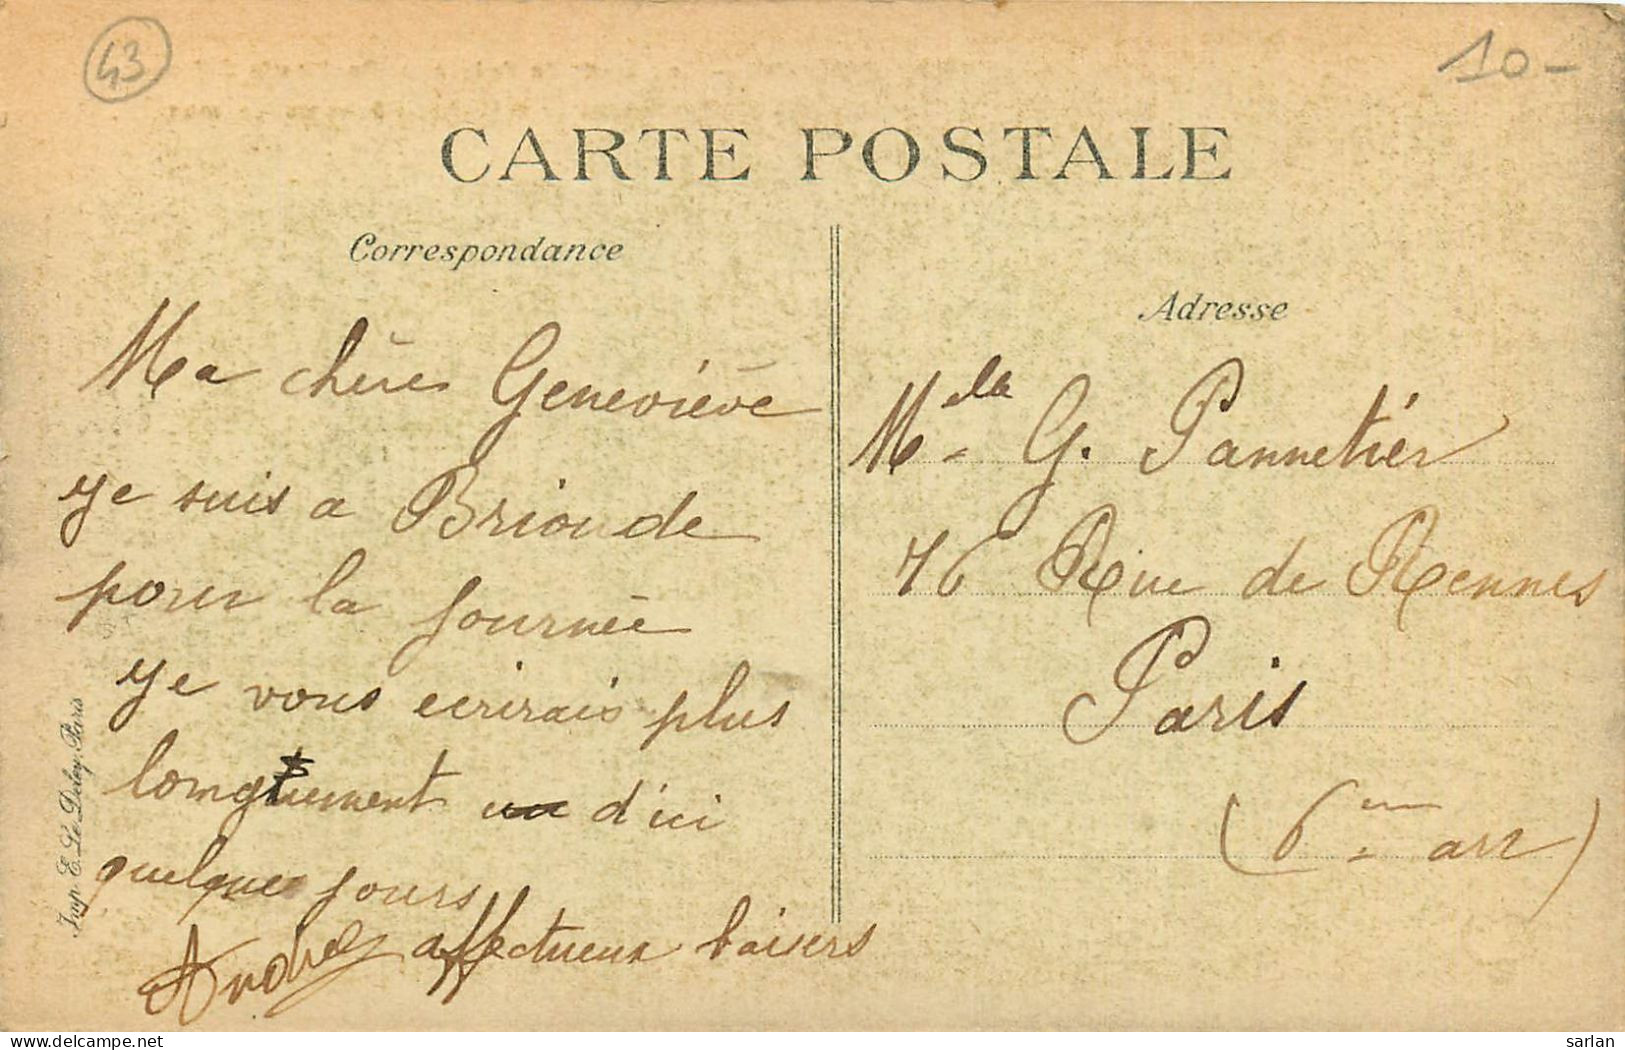 43
10-
CARTE POSTALE
Correspondance
Adresse
Ma chère Geneviève
Je suis a Brioude
pour la journée
Je vous ecrirais plus
longtement d'ici
quelques jours
André affectueux baisers
Melle G. Pannetier
76 Rue de Rennes
Paris
(6em arr)
Imp. E. Le Deley, Paris
delcampe.net
sarlan